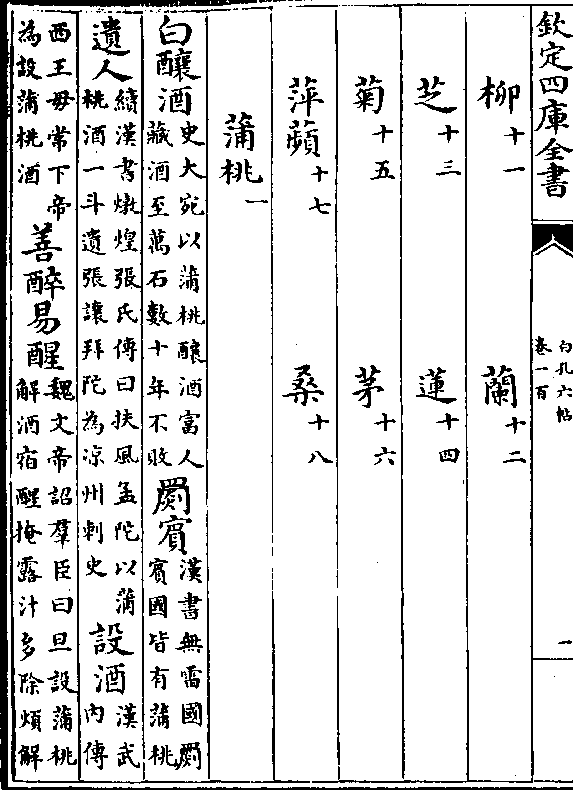 欽定四庫全書
白孔六帖
卷一百
一
柳十一 蘭十二
芝十三 蓮十四
菊十五 茅十六
萍蘋十七 桑十八
蒲桃一
白釀酒史大宛以蒲桃釀酒富人藏酒至萬石數十年不敗罽賓漢書無雷國罽賓國皆有蒲桃
遺人續漢書燉煌張氏傳曰扶風孟陀以蒲桃酒一斗遺張讓拜陀為凉州刺史設酒漢武內傳
西王母常下帝為設蒲桃酒善醉易醒魏文帝詔羣臣曰旦設蒲桃解酒宿醒掩露汁多除煩解